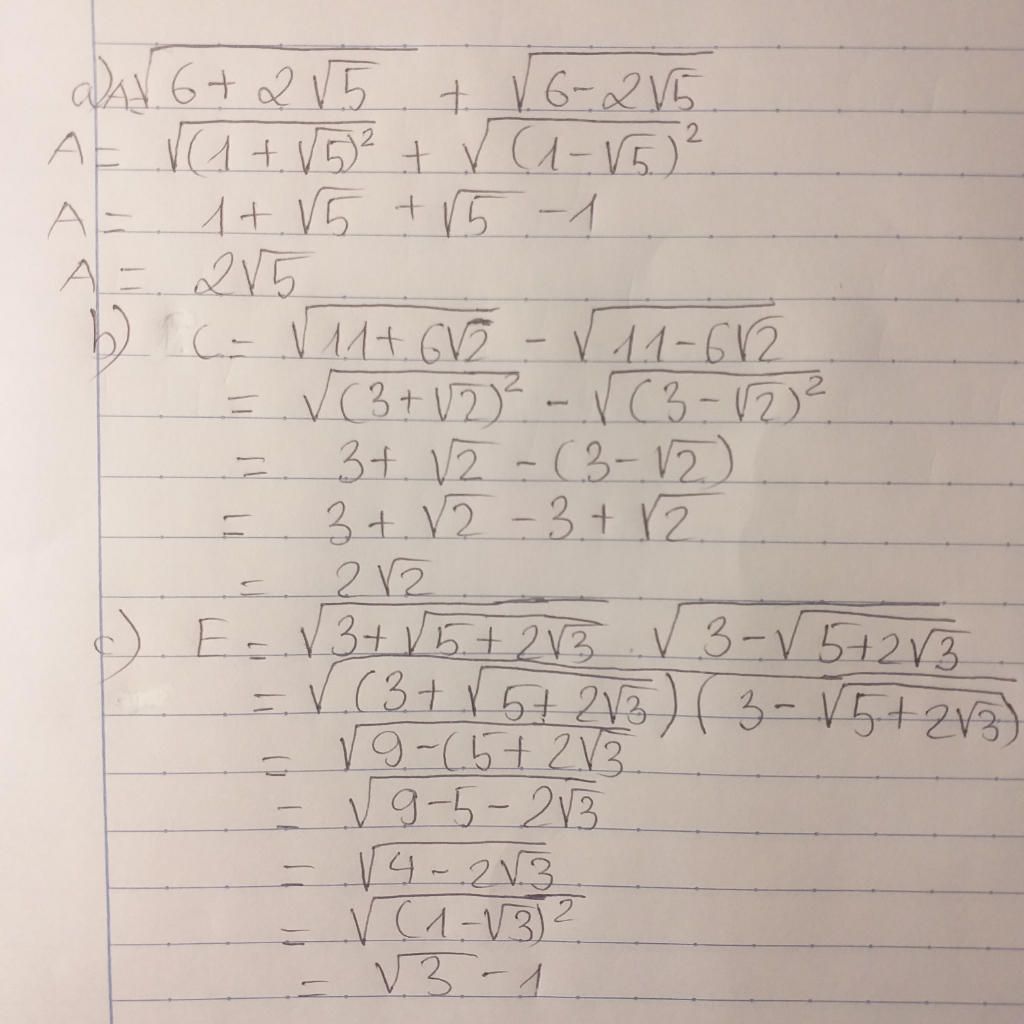 a) A=√(6+2√5) + √(6-2√5)
A = √((1+√5)²) + √((1-√5)²)
A = 1+√5 +√5 -1
A = 2√5
b) C= √(11+6√2) - √(11-6√2)
= √((3+√2)²) - √((3-√2)²)
= 3+ √2 -(3-√2)
= 3+√2 -3+√2
= 2√2
c) E= √(3+√(5+2√3)) . √(3-√(5+2√3))
= √((3+√(5+2√3))(3-√(5+2√3)))
= √(9-(5+2√3)
= √(9-5-2√3)
= √(4-2√3)
= √((1-√3)²)
= √3 -1